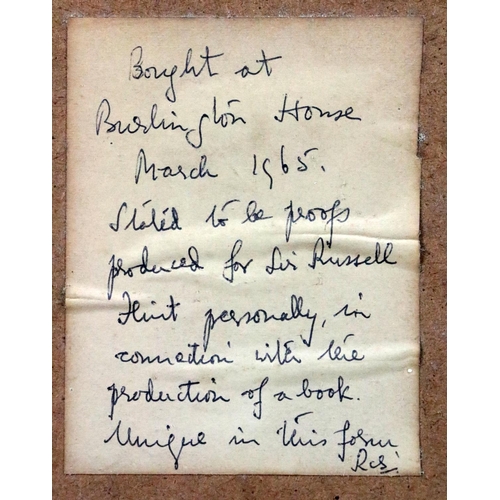 Bought at
Burlington House
March 1965.
Stated to be proofs
produced for Sir Russell
Flint personally, in
connection with the
production of a book.
Unique in this form